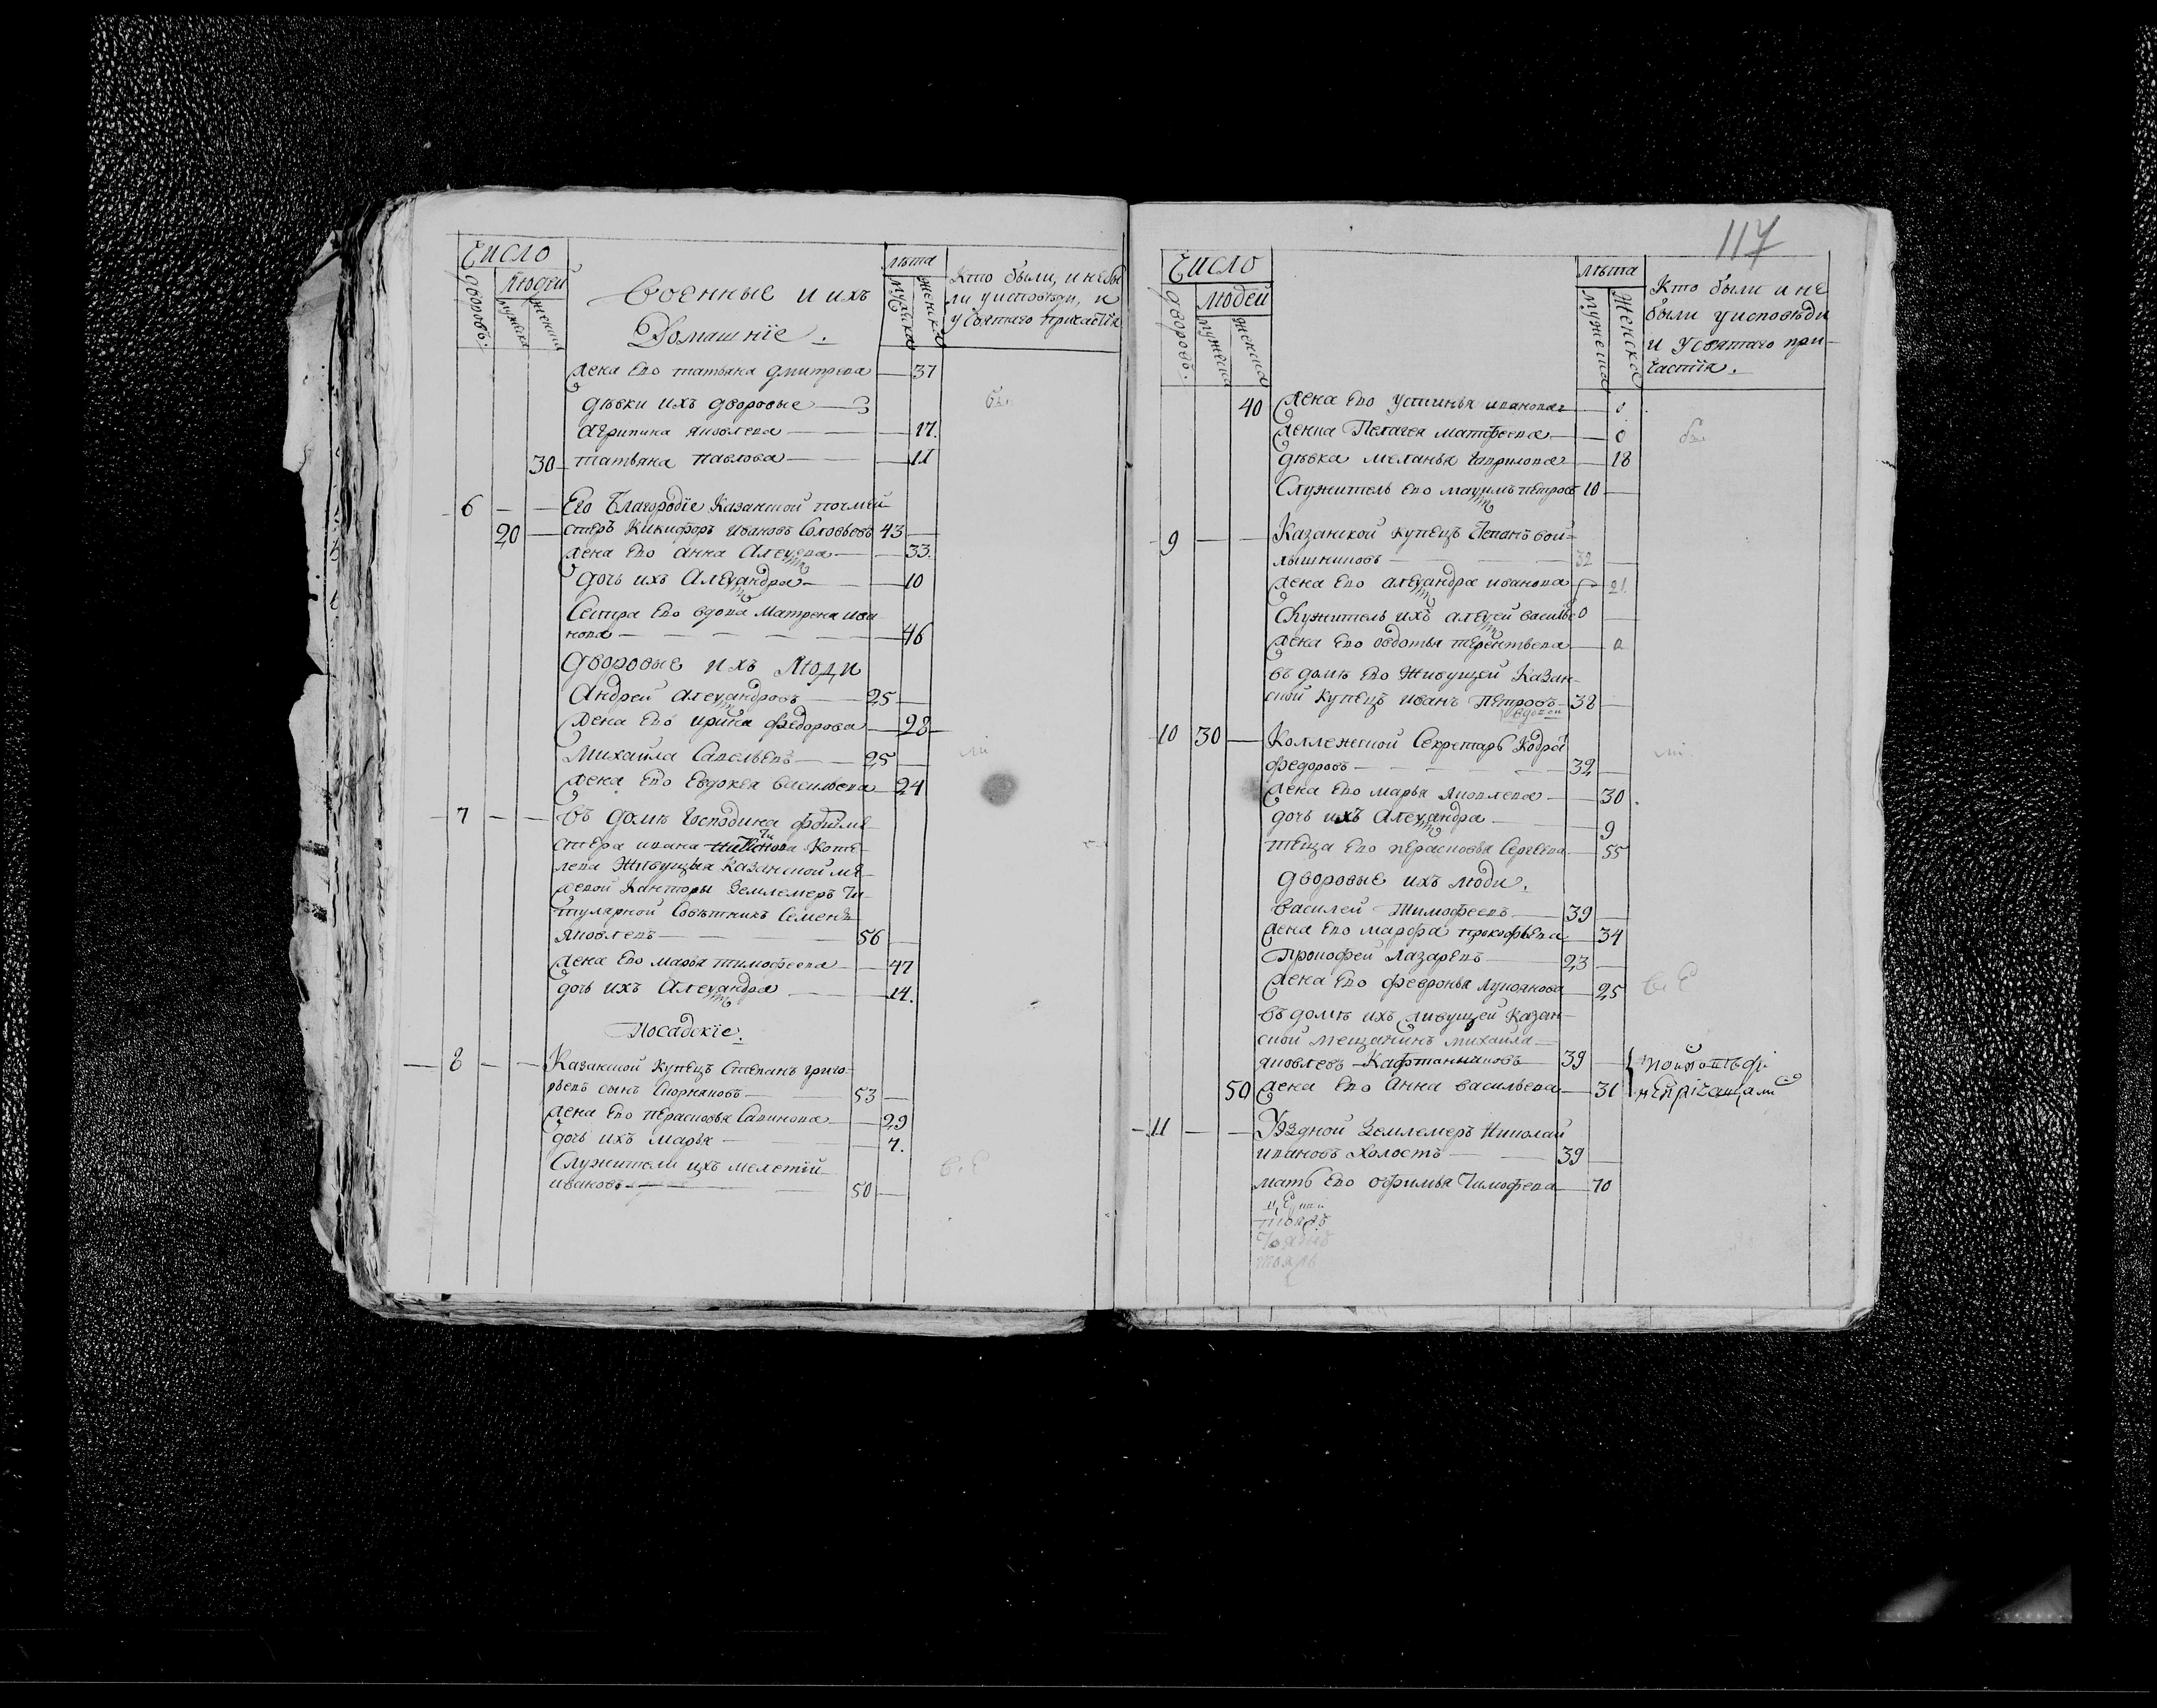 Число
Людей
Дворовъ.
мужеска
женска
Военные и ихъ
Домашнїе.
лѣта
мужеска
женска
Кто были, и небы
ли уисповѣди, и
у святаго причастїя
жена Его татьяна дмитрева 37
дѣвки ихъ дворовые
агрипина яковлева 17.
30 татьяна павлова 11
6 Его Благородїе Казанской почмей
20 стеръ Никифоръ ивановъ Соловьовъ 43
жена Его анна Алеѯева 33.
дочь ихъ Алеѯандра 10
Сестра Его вдова Матрена ива
нова 46
дворовые ихъ люди
Андрей алеѯандровъ 25
жена Его ирина федорова 28
Михайла Савельевъ 25
жена Его Евдокея васильева 24
7 въ домѣ Господина
стера ивана
лева Живущия Казанской ме
жевой Канторы Землемеръ ти
тулярной Совѣтникъ Семенъ
яковлевъ 56
жена Его марья тимофеева 47
дочь ихъ Алеѯандра 14.
Посадскїе.
8 Казанской купецъ Степанъ григо
рьевъ сынъ 53
жена Его перасковья Савинова 29
дочь ихъ марья 7.
Служители ихъ мелетїй
ивановъ 50
117
Число
Людей
Дворовъ.
мужеска
женска
лѣта
мужеска
Женска
Кто были и не
были уисповѣди
и Усвятаго при
частїя.
40 жена Его устинья иванова 0
женка Пелагея матфеева 0
дѣвка меланья гаврилова 18
Служитель Его маѯимъ петровъ 10
9 Казанской купецъ Степанъ вой
лышниковъ 32
жена Его алеѯандра иванова 21.
Служитель ихъ алеѯей василье 0
жена Его овдотья терентьева 0
въ домѣ Его Живущей Казан
ской купецъ иванъ Петровъ 38
вдовой
10 30 Коллежской Секретарь
федоровъ 32
жена Его марья яковлева 30.
дочь ихъ Алеѯандра 9
теща Его перасковья Сергеева 55
дворовые ихъ люди.
василей Тимофеевъ 39
жена Его марфа прокофьева 34
Прокофей лазаревъ 23
жена Его февронья лукоянова 25
въ домѣ ихъ живущей Казан
ской мещанинъ михайла
яковлевъ Кафтанниковъ 39
50 жена Его Анна васильева 31
11 Уѣздной Землемеръ Николай
ивановъ холостъ 39
мать Его офимья Тимофева 70